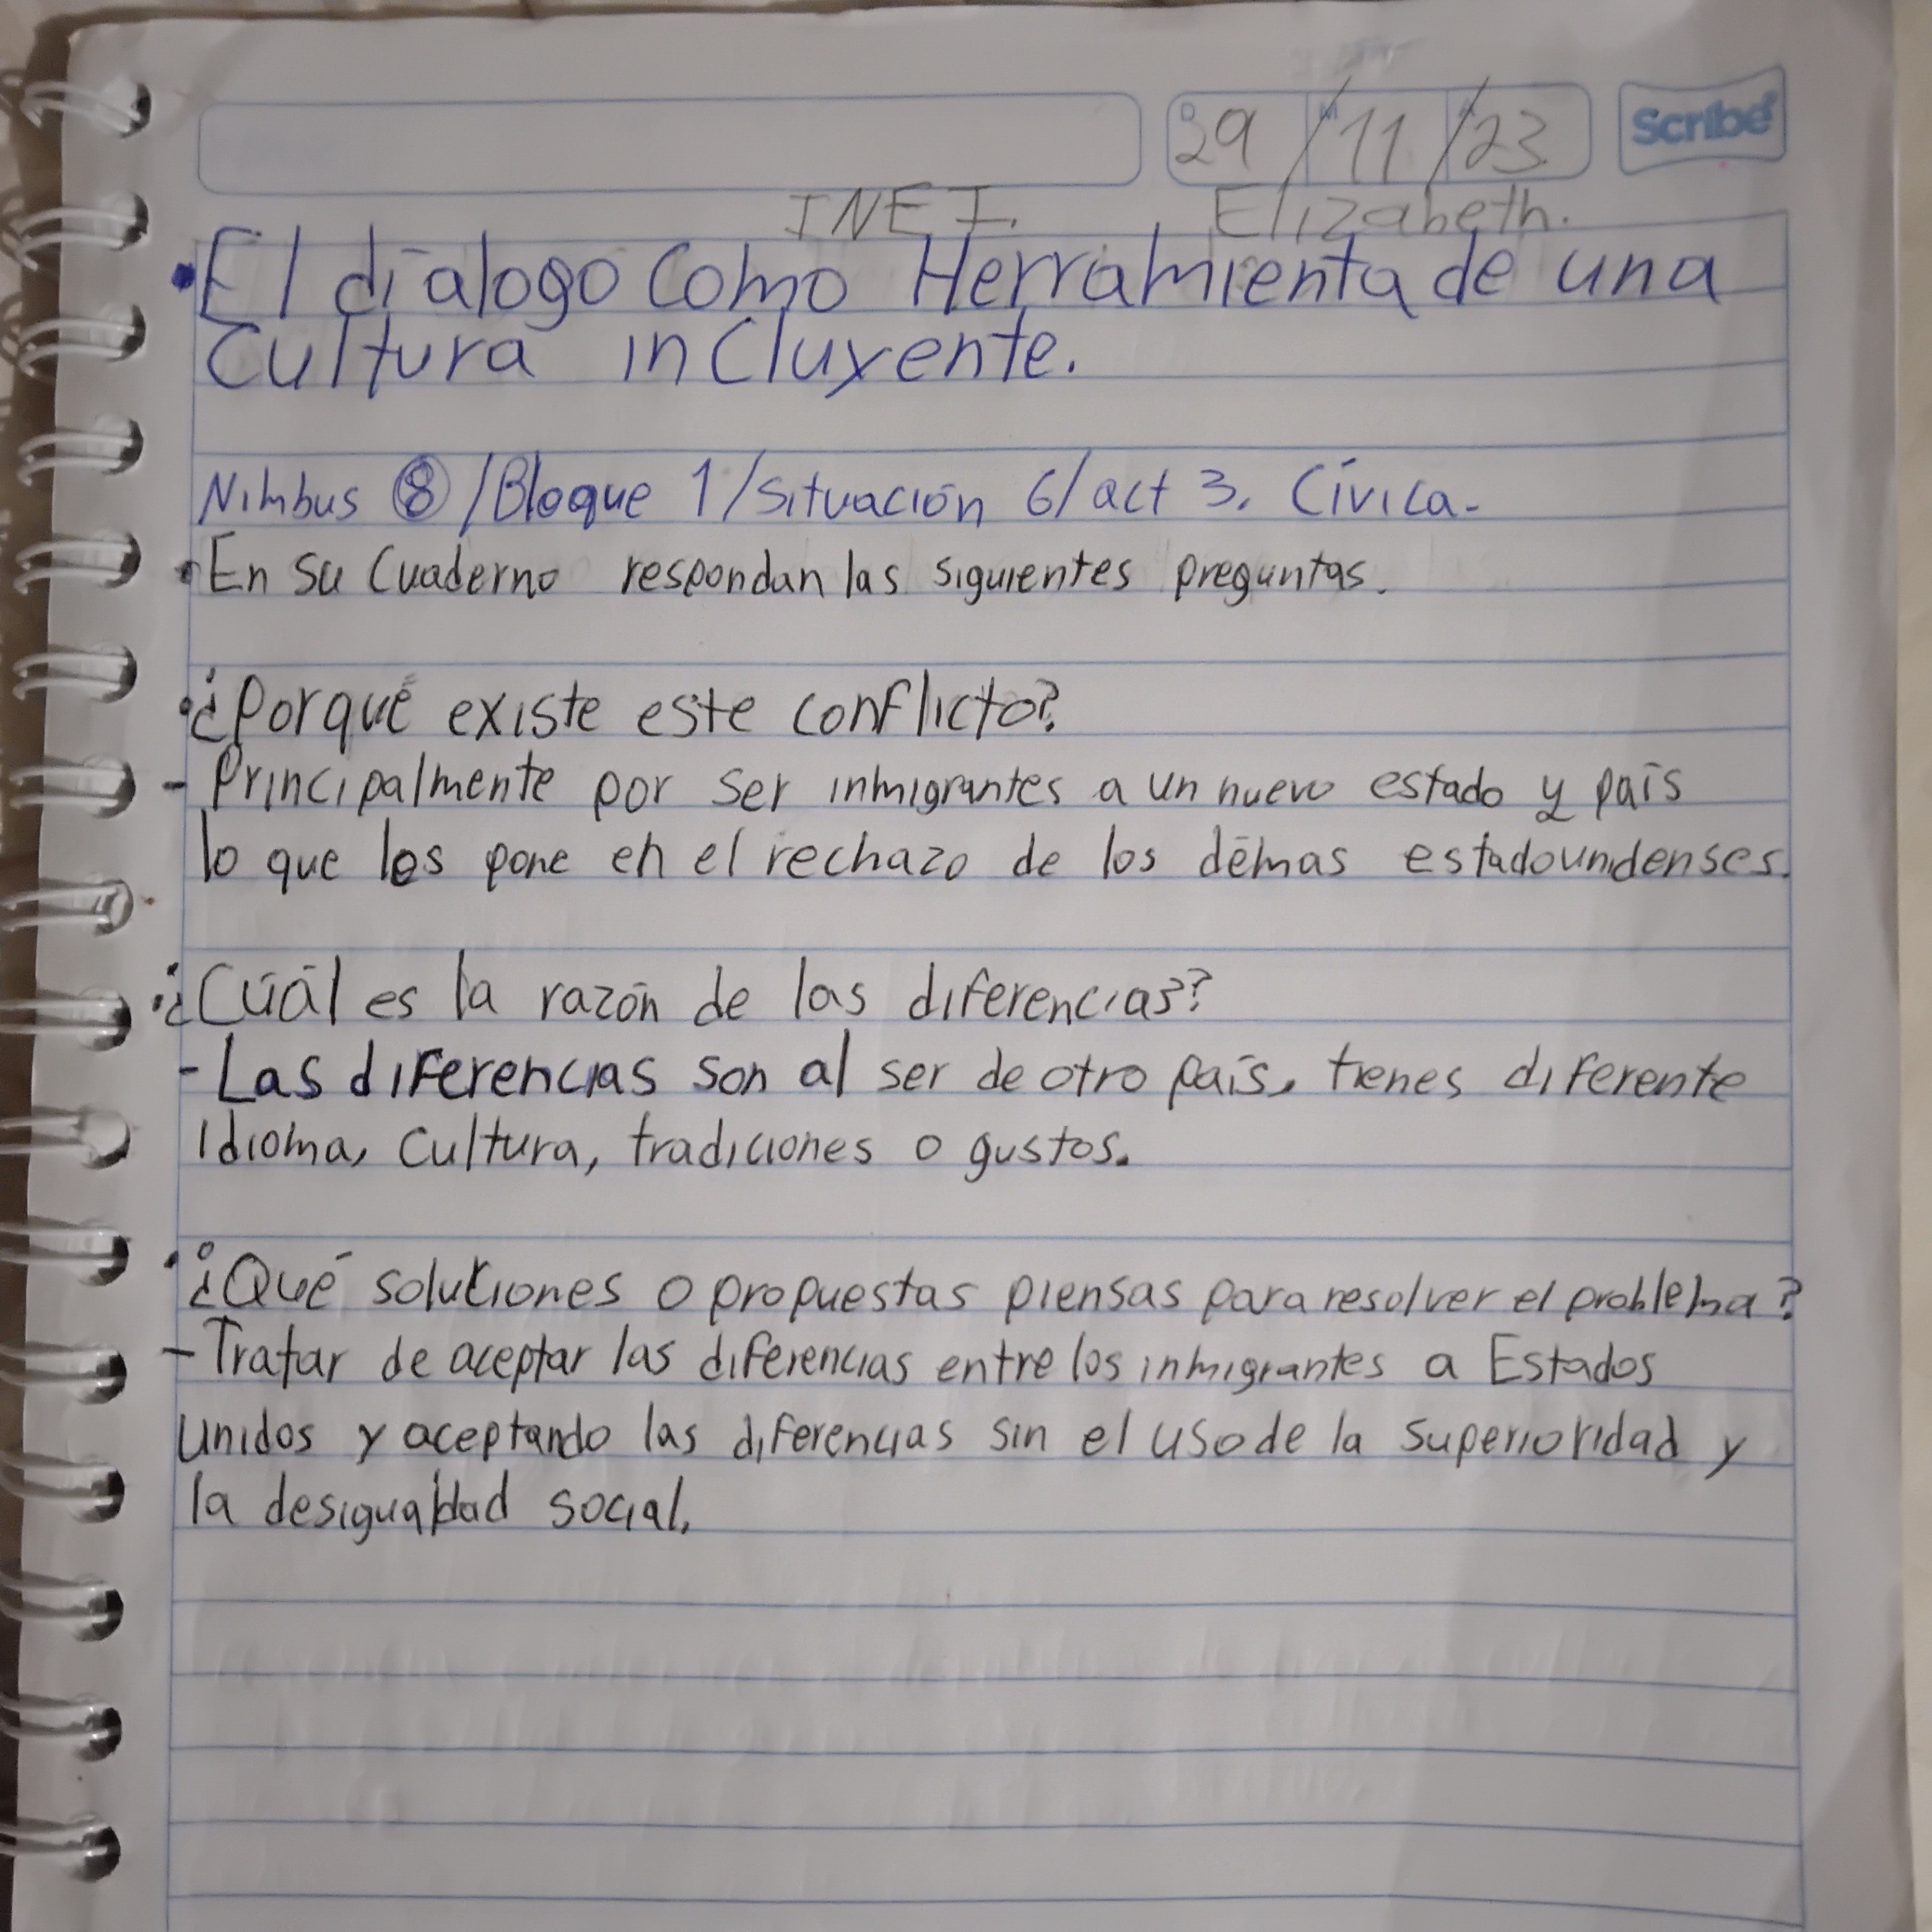 29/11/23 Scribe
INEI. Elizabeth.
•El díalogo como Herramienta de una
Cultura incluyente.
Nimbus 8/Bloque 1/situación 6/act 3. Cívica.
•En su cuaderno respondan las siguientes preguntas.
•¿Porqué existe este conflicto?
- Principalmente por ser inmigrantes a un nuevo estado y país
lo que los pone en el rechazo de los démas estadounidenses.
•¿Cúál es la razón de las diferencias?
-Las diferencias son al ser de otro país, tienes diferente
idioma, cultura, tradiciones o gustos.
•¿Qué soluciones o propuestas piensas para resolver el problema?
-Tratar de aceptar las diferencias entre los inmigrantes a Estados
Unidos y aceptando las diferencias sin el uso de la superioridad y
la desigualdad social.